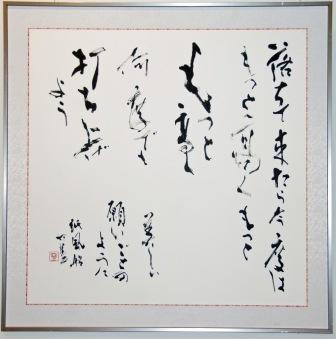 落ちて来たら今度は
もっと高くもっと
もっと高く
何度でも
打ち上げ
よう
美しい
願いごとの
ように
紙風船